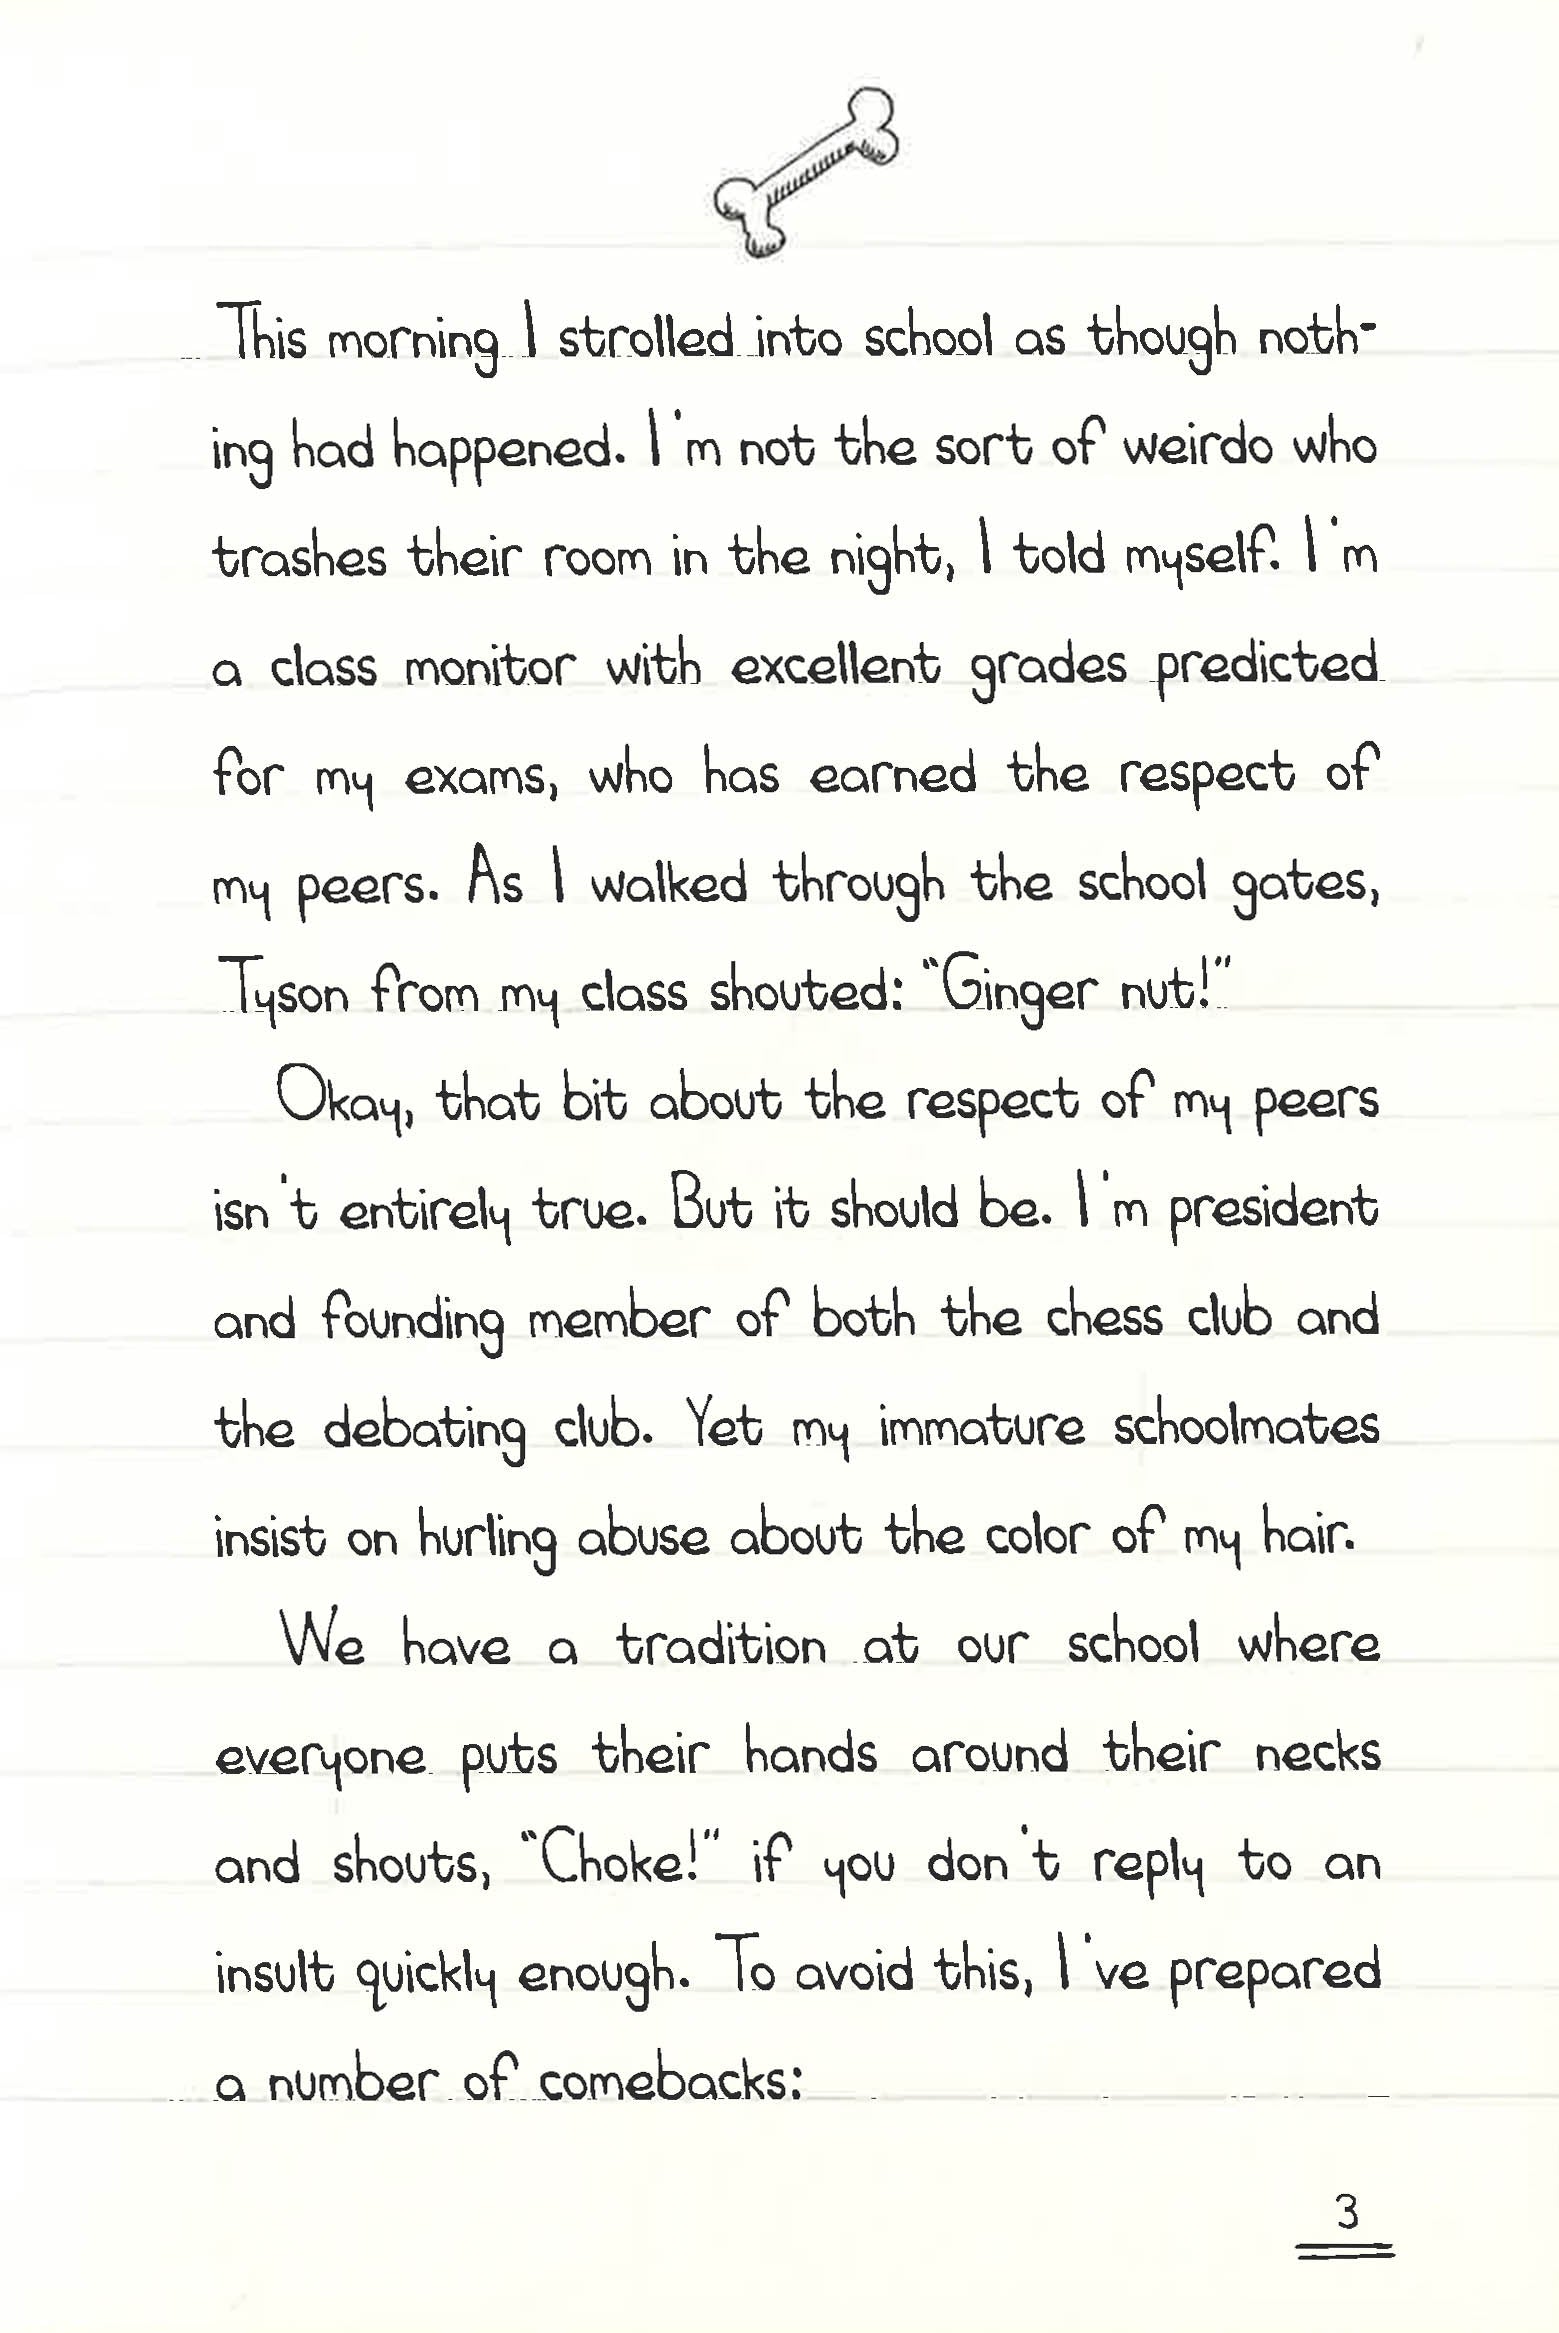 This morning I strolled into school as though noth-
ing had happened. I'm not the sort of weirdo who
trashes their room in the night, I told myself. I'm
a class monitor with excellent grades predicted
for my exams, who has earned the respect of
my peers. As I walked through the school gates,
Tyson from my class shouted: “Ginger nut!”
Okay, that bit about the respect of my peers
isn't entirely true. But it should be. I'm president
and founding member of both the chess club and
the debating club. Yet my immature schoolmates
insist on hurling abuse about the color of my hair.
We have a tradition at our school where
everyone puts their hands around their necks
and shouts, “Choke!” if you don't reply to an
insult quickly enough. To avoid this, I've prepared
a number of comebacks:
3